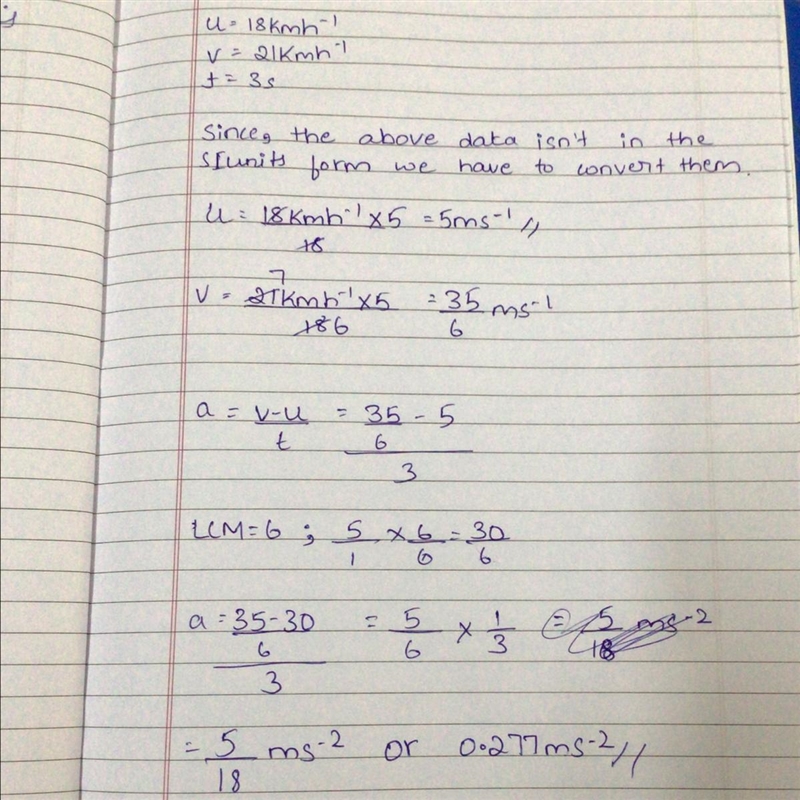 u = 18Kmh⁻¹
v = 21Kmh⁻¹
t = 3s
Since, the above data isn't in the
SIunits form we have to convert them.
u = 18Kmh⁻¹ × 5 = 5ms⁻¹ //
18
7
v = 21Kmh⁻¹ × 5 = 35 ms⁻¹
18 6 6
a = v-u = 35 - 5
t 6
3
LCM = 6 ; 5 × 6 = 30
1 6 6
a = 35-30 = 5 × 1 = 5 ms⁻²
6 6 3 18
3
= 5 ms⁻² or 0.277ms⁻² //
18